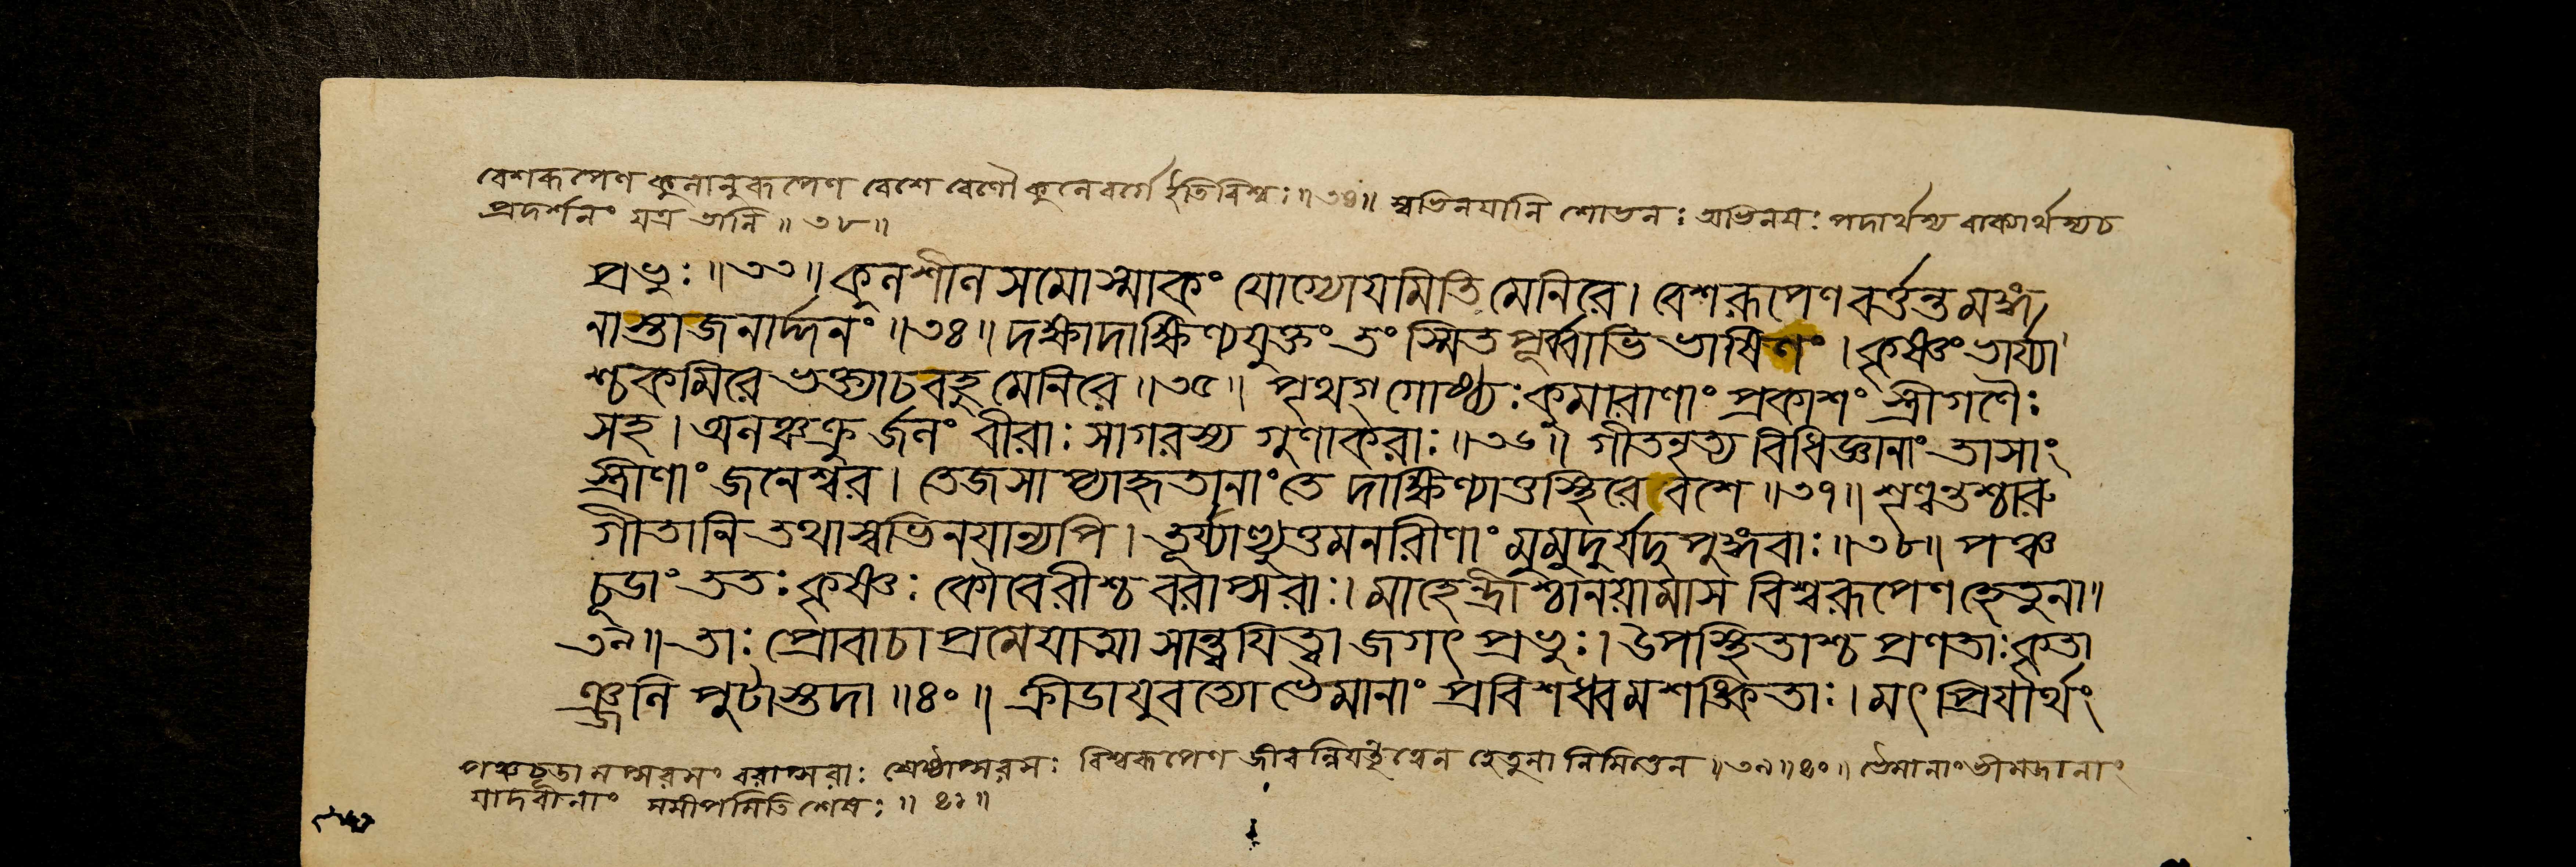 বেশরূপেণ কুনানুরূপেণ বেশে বেণৌ কুনে বর্গে ইতিবিশ্বঃ॥৩৪॥ স্বভিনযানি শোভনঃ অভিনযঃ পদার্থস্য বাক্যার্থস্যচ
প্রদর্শনং যত্র তানি॥৩৮॥
প্রভুঃ॥৩৩॥ কুনশীনসমোস্মাকং যোগ্যোযমিতি মেনিরে। বেশরূপেণ বর্ত্তন্তমঙ্গ
নাস্তাজনার্দ্দনং॥৩৪॥ দক্ষাদাক্ষিণ্যযুক্তং তং স্মিতপূর্ব্বাভিভাষিণং। কৃষ্ণং ভার্য্যা
শ্চকমিরে ভক্ত্যাচবহু মেনিরে॥৩৫॥ পৃথগ্গোষ্ঠ্যঃকুমারাণাং প্রকাশং স্ত্রীগণৈঃ
সহ। অনঞ্চক্রুর্জনং বীরাঃ সাগরস্য গুণাকরাঃ॥৩৬॥ গীতনৃত্য বিধিজ্ঞানাং তাসাং
স্ত্রীণাং জনেশ্বর। তেজসাপ্যাহৃতানাং তে দাক্ষিণ্যাত্তস্থিরে বশে॥৩৭॥ শৃণ্বন্তশ্চারু
গীতানি তথাস্বভিনযান্যপি। তূর্য্যাণ্যুত্তমনরীণাং মুমুদুর্যদুপুঙ্গবাঃ॥৩৮॥ পঞ্চ
চূডাং ততঃ কৃষ্ণঃ কৌবেরীশ্চ বরাপ্সরাঃ। মাহেন্দ্রীশ্চানয়ামাস বিশ্বরূপেণ হেতুনা॥
৩৯॥ তাঃ প্রোবাচাপ্রমেযাত্মা সান্ত্বযিত্বা জগৎ প্রভুঃ। উপস্থিতাশ্চ প্রণতাঃ কৃতা
ঞ্জনি পুটাস্তদা॥৪০॥ ক্রীডাযুবত্যো ভৈমানাং প্রবিশধ্বমশঙ্কিতাঃ। মৎ প্রিযার্থং
পঞ্চচূডামপ্সরসং বরাপ্সরাঃ শ্রেষ্ঠাপ্সরসঃ বিশ্বরূপেণ জীবন্নিযন্তৃত্বেন হেতুনা নিমিত্তেন॥৩৯॥৪০॥ ভৈমানাং ভীমজানাং
যাদবীনাং সমীপমিতিশেষঃ॥৪১॥